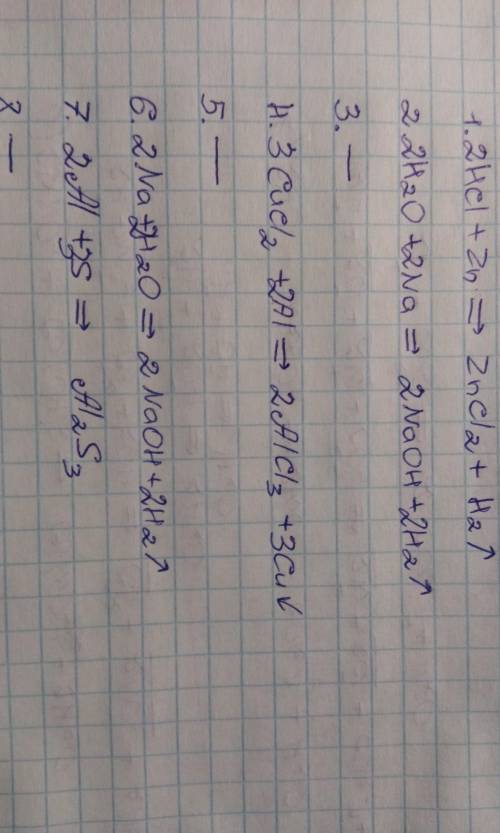 1. 2HCl + Zn => ZnCl₂ + H₂↑
2 2H₂O + 2Na => 2NaOH + 2H₂↑
3. —
4. 3CuCl₂ + 2Al => 2AlCl₃ + 3Cu↓
5. —
6. 2Na + 2H₂O => 2NaOH + 2H₂↑
7. 2Al + 3S => Al₂S₃
8 —